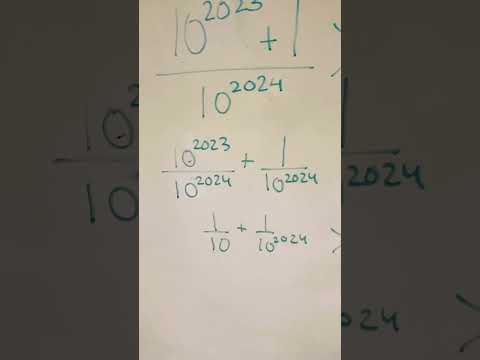 10^2023 + 1
10^2024
10^2023 / 10^2024 + 1 / 10^2024
1/10 + 1/10^2024